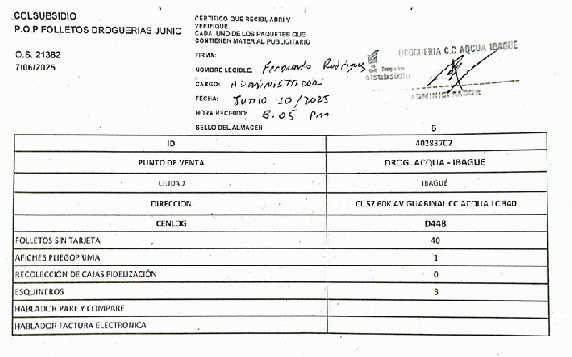 COLSUBSIDIO
P.O.P FOLLETOS DROGUERIAS JUNIO
O.S. 21382
7/06/2025
CERTIFICO QUE RECIBI, ABRI Y
VERIFIQUE
CADA UNO DE LOS PAQUETES QUE
CONTIENEN MATERIAL PUBLICITARIO
FIRMA:
NOMBRE LEGIBLE: Fernando Rodriguez
CARGO: ADMINISTRADOR
FECHA: JUNIO 10/2025
HORA RECIBIDO: 5:05 Pm
SELLO DEL ALMACEN
DROGUERIA C.C ACQUA IBAGUE
ADMINISTRADOR
6
ID
PUNTO DE VENTA DROG. ACQUA - IBAGUE
CIUDAD IBAGUÉ
DIRECCION
CENLOG D448
FOLLETOS SIN TARJETA 40
AFICHES PLIEGO PUMA 1
RECOLECCIÓN DE CAJAS FIDELIZACIÓN 0
ESQUINEROS 3
HABLADOR PARE Y COMPARE
HABLADOR FACTURA ELECTRONICA